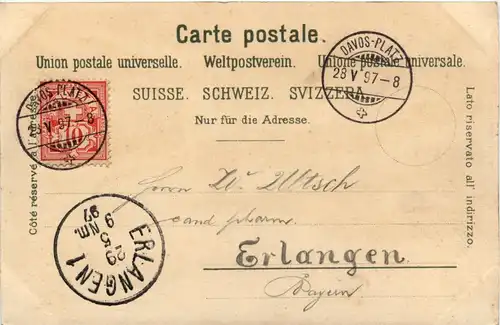 Carte postale.
Union postale universelle. Weltpostverein. Unione postale universale.
SUISSE. SCHWEIZ. SVIZZERA.
Nur für die Adresse.
Côté réservé à l'adresse.
Lato riservato all' indirizzo.
DAVOS-PLATZ
28 V 97-8
DAVOS-PLATZ
28 V 97-8
10
Herrn W. Utsch
cand pharm.
Erlangen
Bayern
ERLANGEN 1
29
5 Nm.
9 97